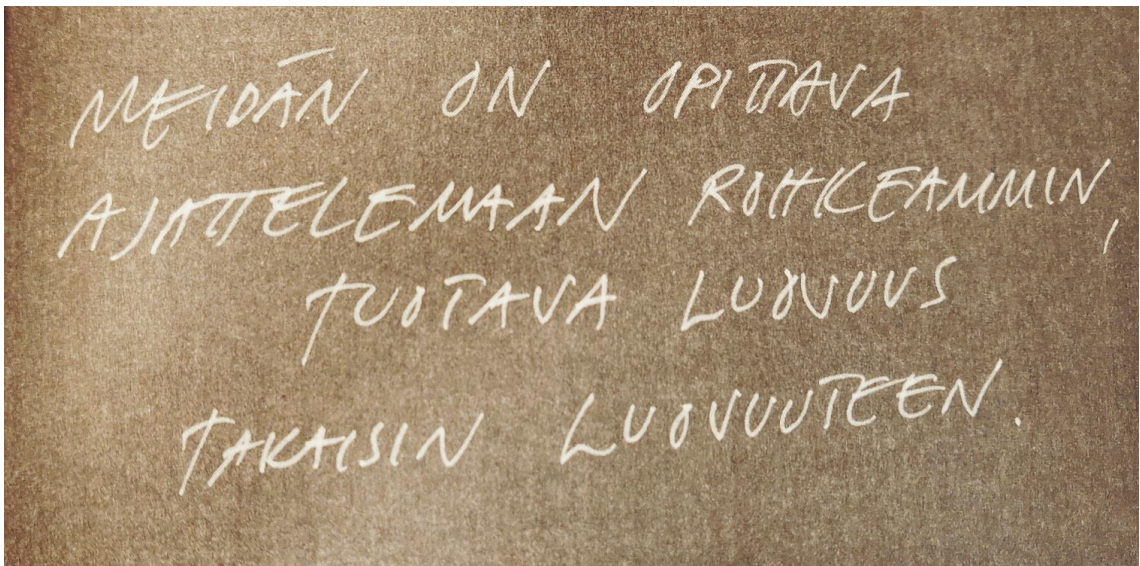 MEIDÄN ON OPITTAVA
AJATTELEMAAN ROHKEAMMIN,
TUOTAVA LUOVUUS
TAKAISIN LUOVUUTEEN.